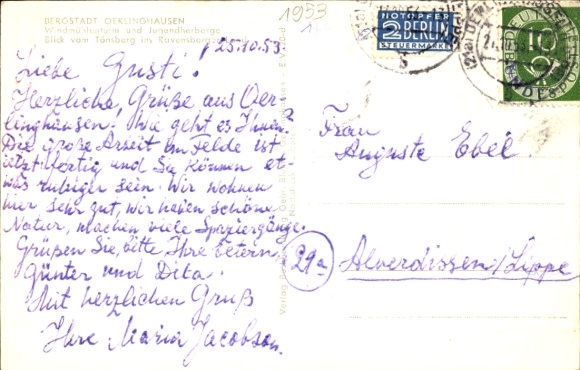 BERGSTADT OERLINGHAUSEN
Windmühlenturm und Jugendherberge
Blick vom Tönsberg ins Ravensbergerland
1953
25.10.53.
Liebe Gusti!
Herzliche Grüße aus Oer-
linghausen! Wie geht es Ihnen?
Die große Arbeit im Felde ist
jetzt fertig und Sie können et-
was ruhiger sein. Wir wohnen
hier sehr gut, wir haben schöne
Natur, machen viele Spaziergänge.
Grüßen Sie, bitte, Ihre Eltern,
Günter und Dita.
Mit herzlichen Gruß
Ihre Maria Jacobson.
NOTOPFER
2 BERLIN
STEUERMARKE
10
DEUTSCHE BUNDESPOST
Frau
Auguste Ebel.
29a
Alverdissen/Lippe